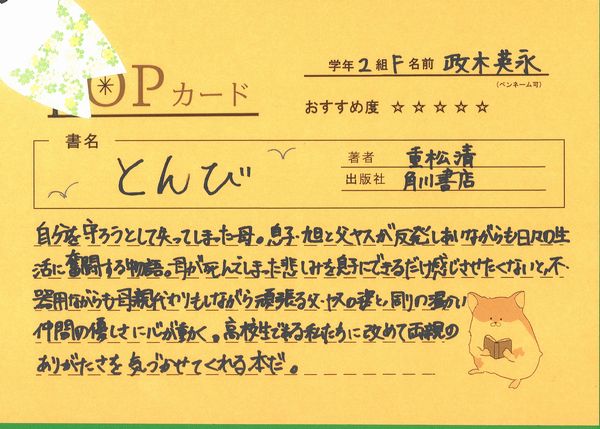 POPカード
学年 2 組 F 名前 政木英永
(ペンネーム可)
おすすめ度 ☆☆☆☆☆
書名
とんび
著者 重松清
出版社 角川書店
自分を守ろうとして失ってしまった母。息子・旭と父ヤスが反発しあいながらも日々の生
活に奮闘する物語。母が死んでしまった悲しみを息子にできるだけ感じさせたくないと、不
器用ながらも母親代わりもしながら頑張る父・ヤスの姿と周りの温かい
仲間の優しさに心が動く。高校生である私たちに改めて両親の
ありがたさを気づかせてくれる本だ。